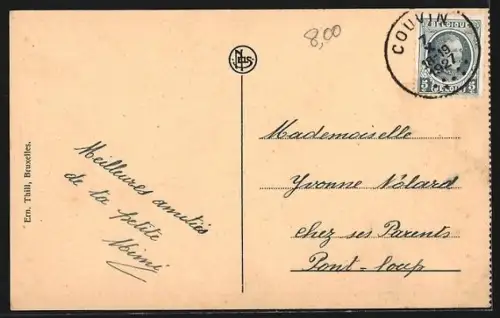 8,00
COUVIN
BELGIQUE
1927
5 5
Nels
Ern. Thill, Bruxelles.
Meilleures amitiés
de ta petite
Mimi
Mademoiselle
Yvonne Nólard
chez ses Parents
Pont-Loup